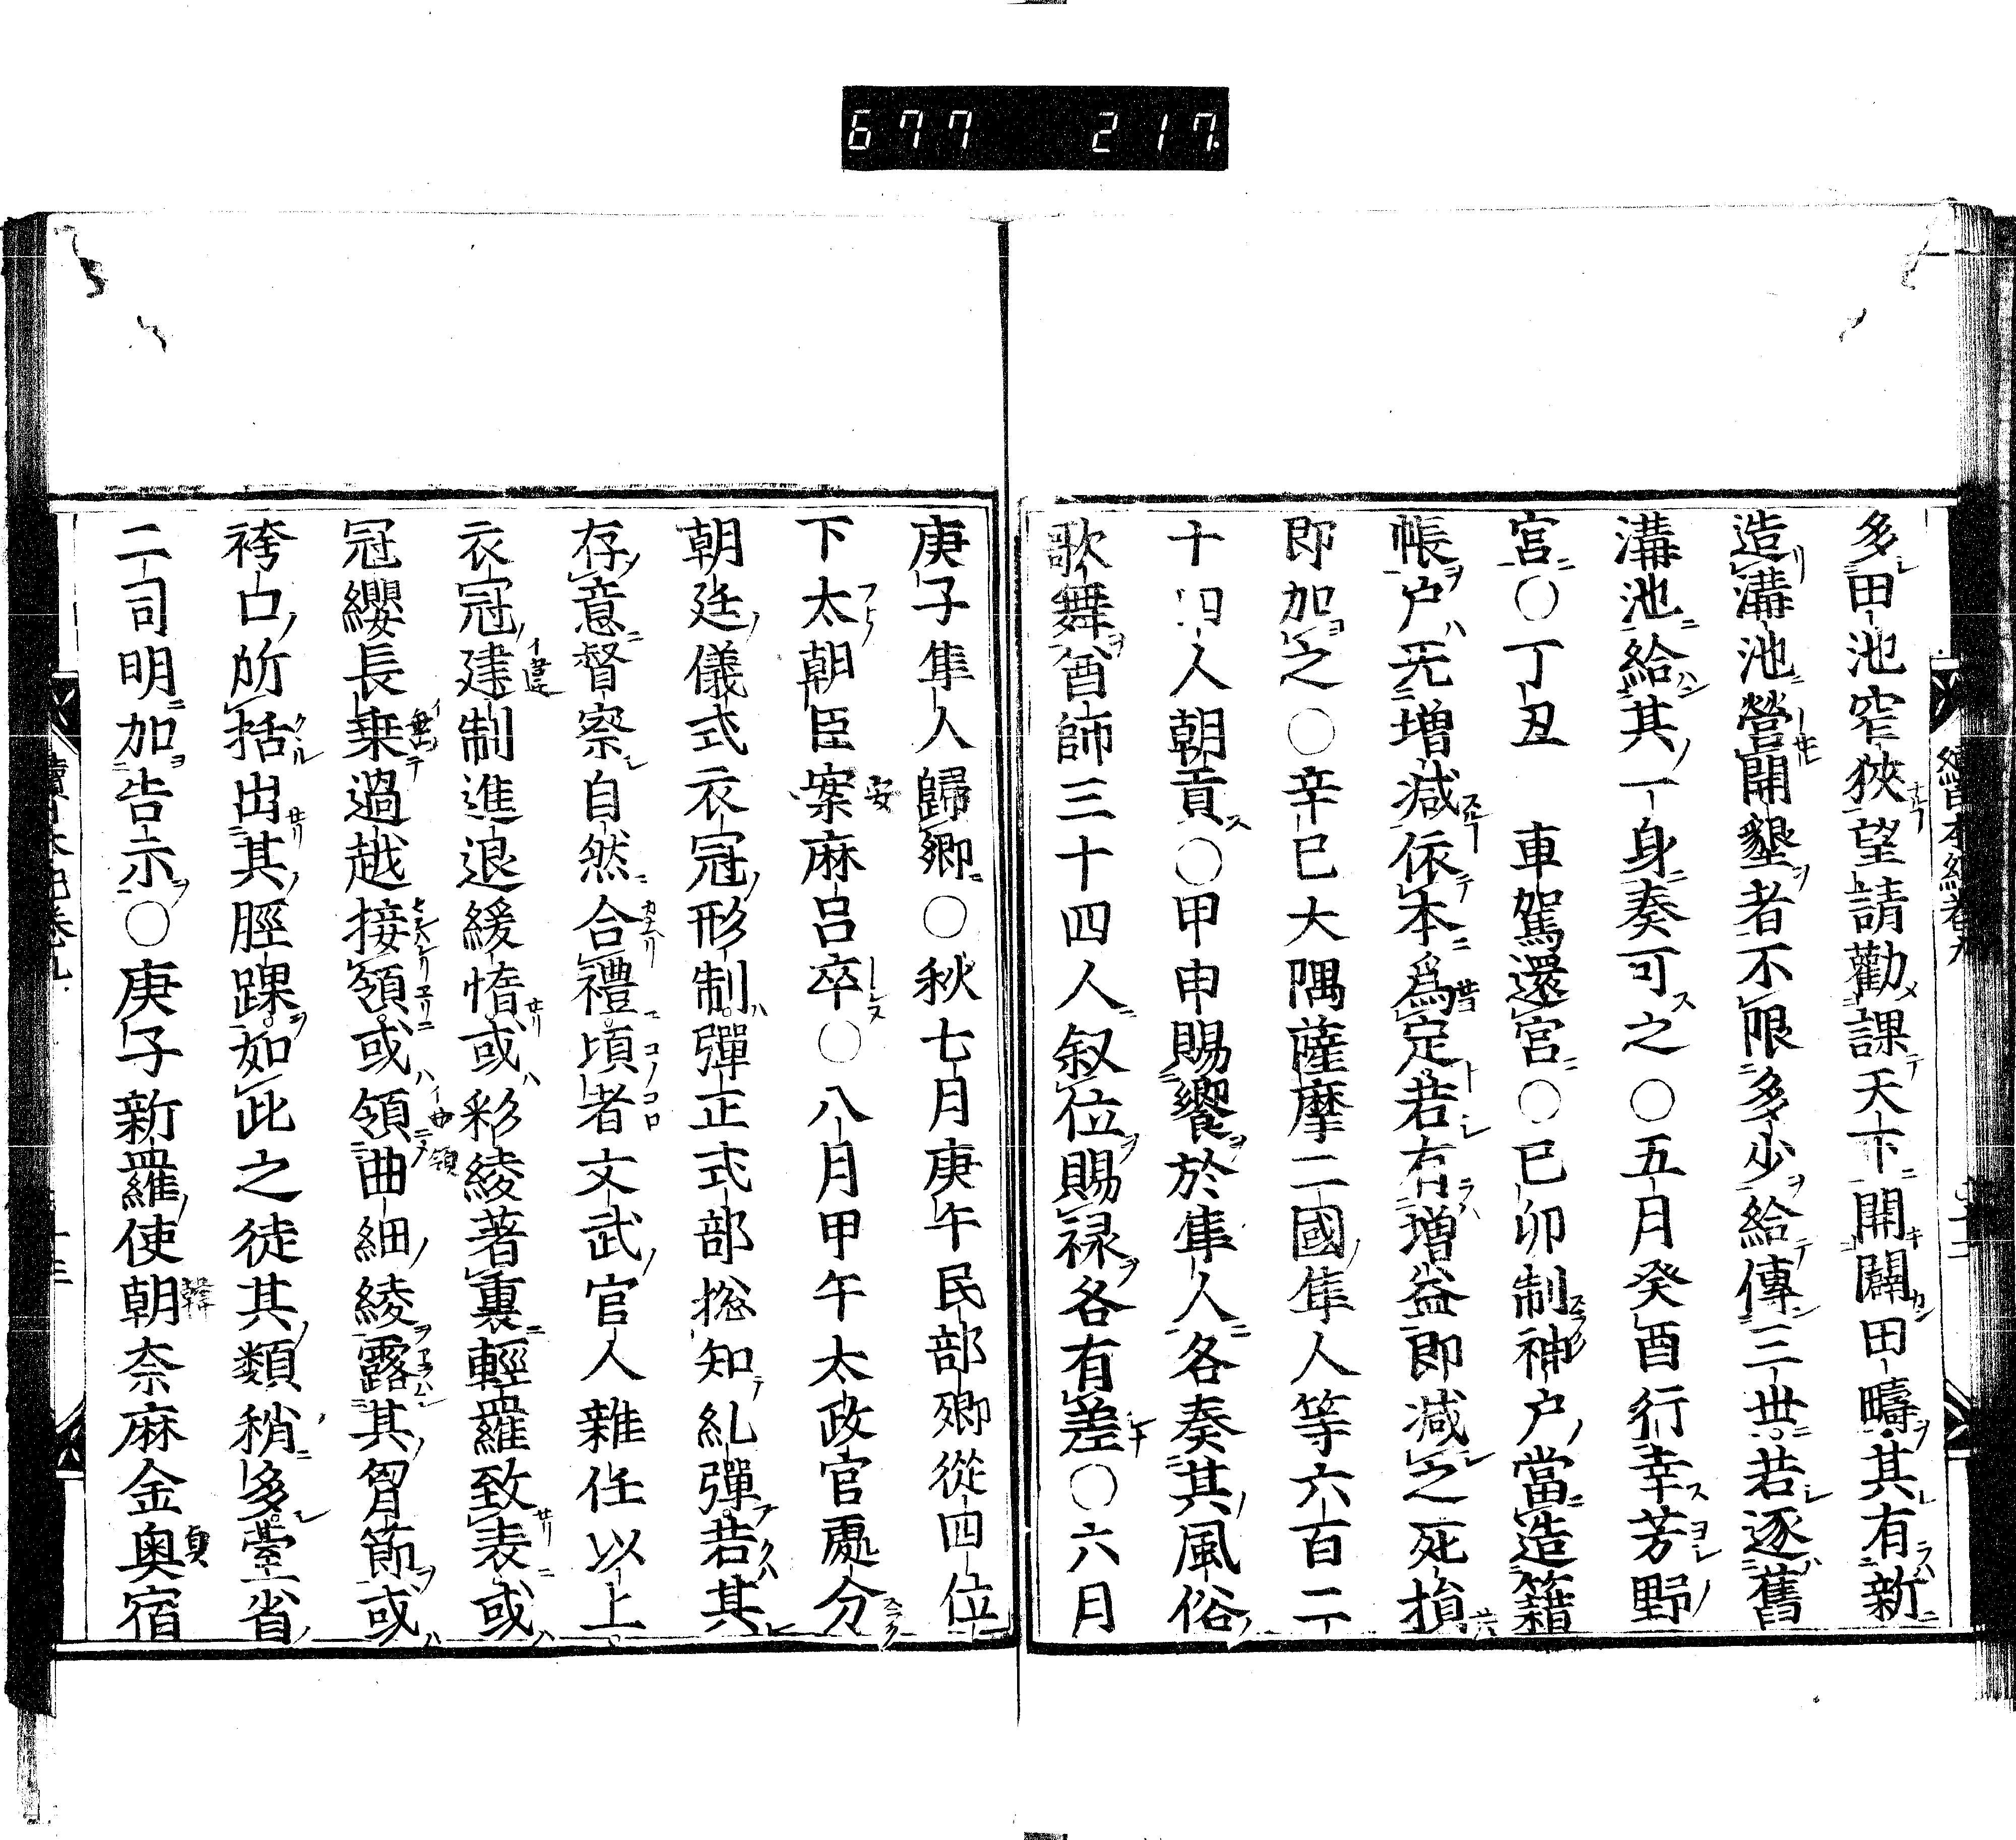 677 217.
多田池窄狹望請勸課天下開闢田疇其有新
造溝池營開墾者不限多少給傳三世若逐舊
溝池給其一身奏可之〇五月癸酉行幸芳野
宮〇丁丑 車駕還宮〇已卯制神户當造籍
帳户无增減依本爲定若有增益即減之死損
即加之〇辛巳大隅薩摩二國隼人等六百二
十四人朝貢〇甲申賜饗於隼人各奏其風俗
歌舞酋師三十四人叙位賜禄各有差〇六月
庚子隼人歸鄕〇秋七月庚午民部卿從四位
下太朝臣案麻呂卒〇八月甲午太政官處分
朝廷儀式衣冠形制彈正式部摠知糺彈若其
存意督察自然合禮頃者文武官人雜任以上
衣冠建制進退緩惰或彩綾著裏輕羅致表或
冠纓長乗過越接領或領曲細綾露其胷節或
袴口所括出其脛踝如此之徒其類稍多臺省
二司明加告示〇庚子新羅使朝奈麻金奥宿